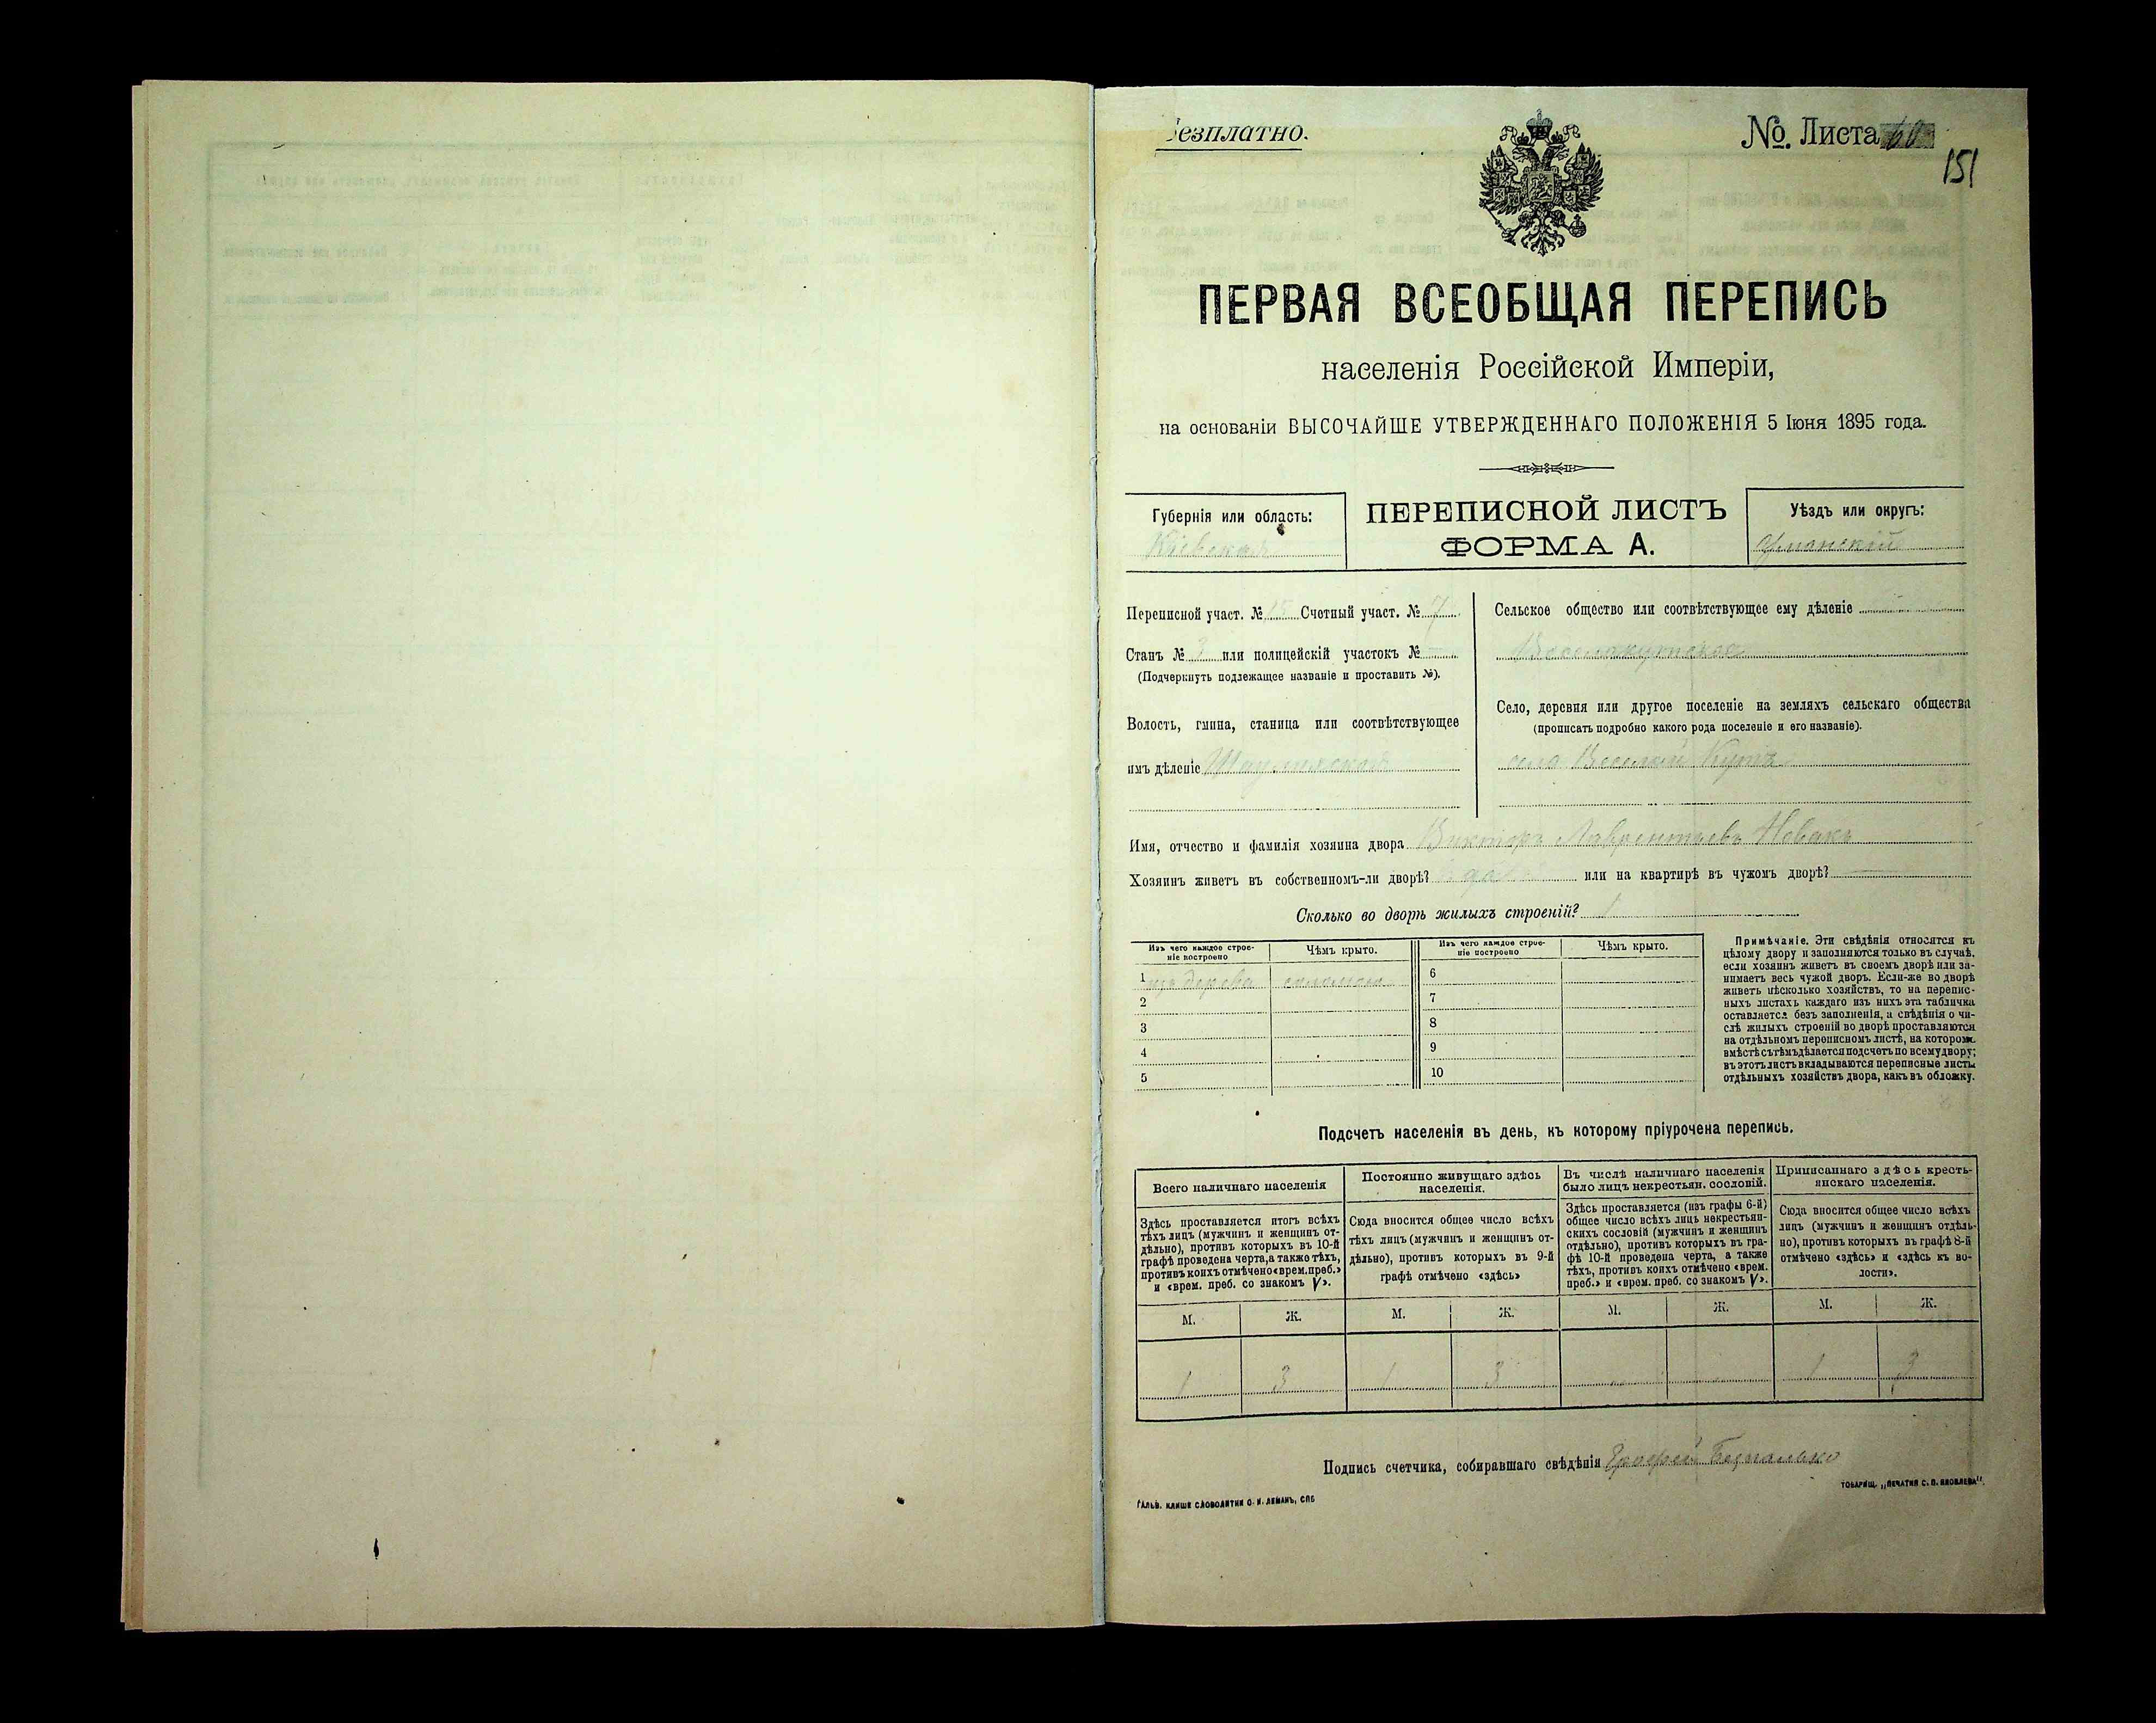 Безплатно.
№. Листа 60
151
ПЕРВАЯ ВСЕОБЩАЯ ПЕРЕПИСЬ
населенія Россійской Имперіи,
на основаніи ВЫСОЧАЙШЕ УТВЕРЖДЕННАГО ПОЛОЖЕНІЯ 5 Іюня 1895 года.
Губернія или область:
Кіевская
ПЕРЕПИСНОЙ ЛИСТЪ
ФОРМА А.
Уѣздъ или округъ:
Уманскій
Переписной участ. № 15 Счетный участ. № 7
Станъ № 3 или полицейскій участокъ № —
(Подчеркнуть подлежащее названіе и проставить №).
Волость, гмина, станица или соотвѣтствующее
имъ дѣленіе
Сельское общество или соотвѣтствующее ему дѣленіе
Веселокутское
Село, деревня или другое поселеніе на земляхъ сельскаго общества
(прописать подробно какого рода поселеніе и его названіе).
село Веселый Кутъ
Имя, отчество и фамилія хозяина двора Викторъ Лаврентьевъ Новакъ
Хозяинъ живетъ въ собственномъ-ли дворѣ? да или на квартирѣ въ чужомъ дворѣ? —
Сколько во дворѣ жилыхъ строеній? 1
Изъ чего каждое строе-
ніе построено
Чѣмъ крыто.
Изъ чего каждое строе-
ніе построено
Чѣмъ крыто.
1 изъ дерева соломою
2
3
4
5
6
7
8
9
10
Примѣчаніе. Эти свѣдѣнія относятся къ
цѣлому двору и заполняются только въ случаѣ,
если хозяинъ живетъ въ своемъ дворѣ или за-
нимаетъ весь чужой дворъ. Если-же во дворѣ
живетъ нѣсколько хозяйствъ, то на перепис-
ныхъ листахъ каждаго изъ нихъ эта табличка
оставляется безъ заполненія, а свѣдѣнія о чи-
слѣ жилыхъ строеній во дворѣ проставляются
на отдѣльномъ переписномъ листѣ, на которомъ
вмѣстѣ съ тѣмъ дѣлается подсчетъ по всему двору;
въ этотъ листъ вкладываются переписные листы
отдѣльныхъ хозяйствъ двора, какъ въ обложку.
Подсчетъ населенія въ день, къ которому пріурочена перепись.
Всего наличнаго населенія
Здѣсь проставляется итогъ всѣхъ
тѣхъ лицъ (мужчинъ и женщинъ от-
дѣльно), противъ которыхъ въ 10-й
графѣ проведена черта, а также тѣхъ,
противъ коихъ отмѣчено «врем. преб.»
и «врем. преб. со знакомъ V».
Постоянно живущаго здѣсь
населенія.
Сюда вносится общее число всѣхъ
тѣхъ лицъ (мужчинъ и женщинъ от-
дѣльно), противъ которыхъ въ 9-й
графѣ отмѣчено «здѣсь»
Въ числѣ наличнаго населенія
было лицъ некрестьян. сословій.
Здѣсь проставляется (изъ графы 6-й)
общее число всѣхъ лицъ некрестьян-
скихъ сословій (мужчинъ и женщинъ
отдѣльно), противъ которыхъ въ гра-
фѣ 10-й проведена черта, а также
тѣхъ, противъ коихъ отмѣчено «врем.
преб.» и «врем. преб. со знакомъ V».
Приписаннаго здѣсь кресть-
янскаго населенія.
Сюда вносится общее число всѣхъ
лицъ (мужчинъ и женщинъ отдѣль-
но), противъ которыхъ въ графѣ 8-й
отмѣчено «здѣсь» и «здѣсь къ во-
лости».
М. Ж. М. Ж. М. Ж. М. Ж.
1 3 1 3 1 3
Подпись счетчика, собиравшаго свѣдѣнія
ГАЛЬВ. КЛИШЕ СЛОВОЛИТНИ О. И. ЛЕМАНЪ, СПБ
ТОВАРИЩ. „ПЕЧАТНЯ С. П. ЯКОВЛЕВА“.